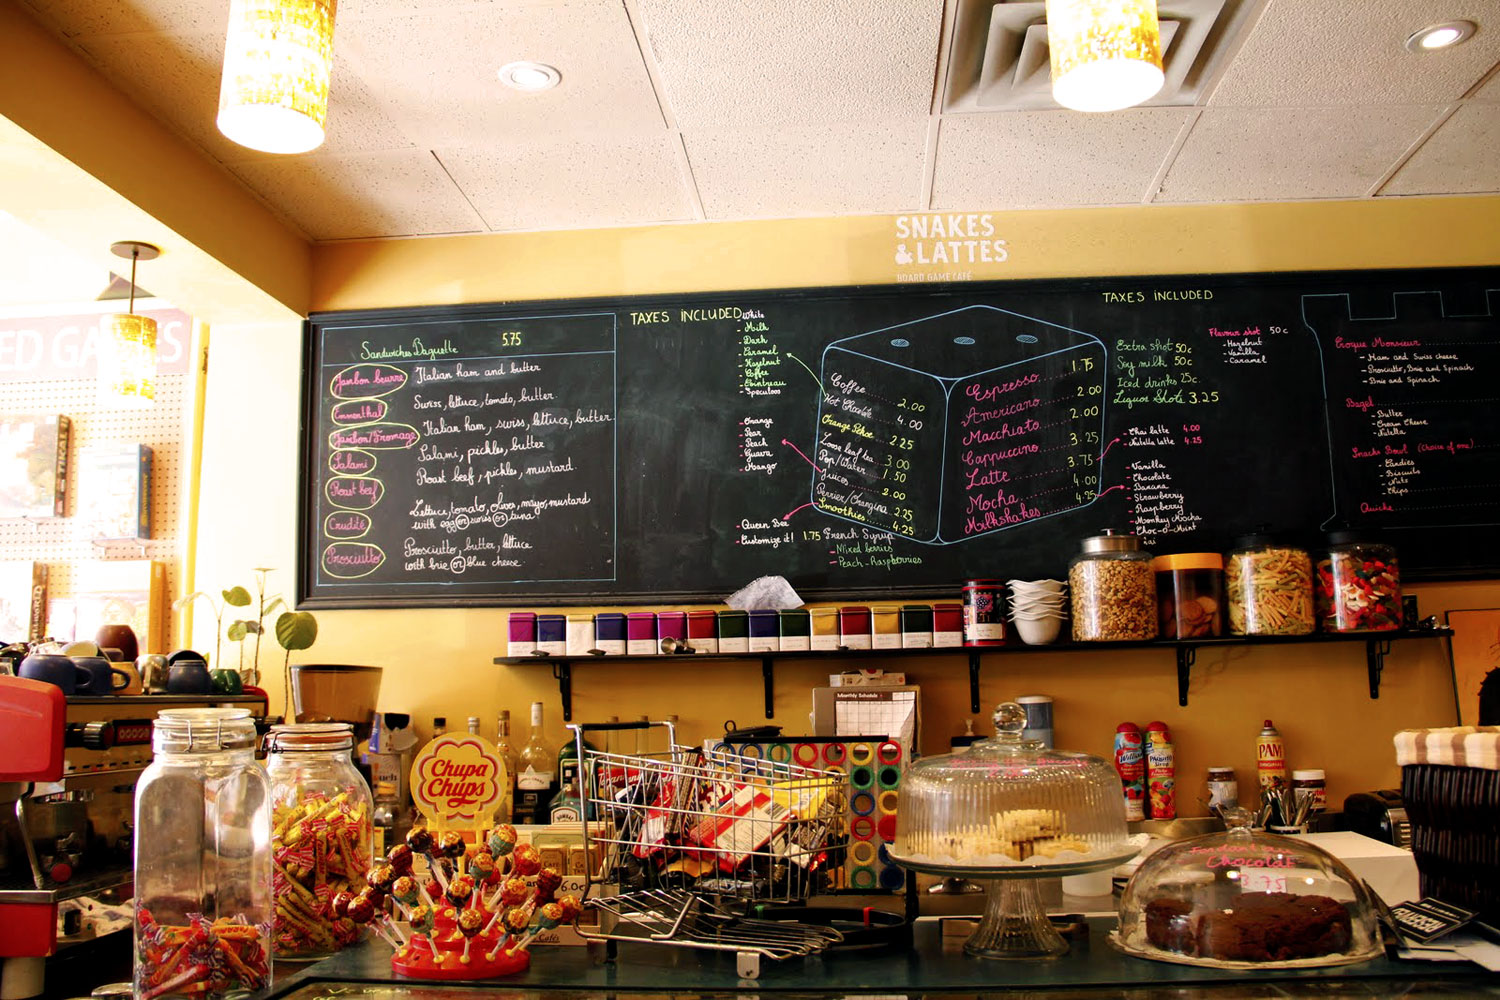 SNAKES
& LATTES
BOARD GAME CAFÉ
ED GAMES
Sandwiches Baguette 5.75
Jambon beurre Italian ham and butter
Emmenthal Swiss, lettuce, tomato, butter
Jambon/Fromage Italian ham, swiss, lettuce, butter
Salami Salami, pickles, butter
Roast beef Roast beef, pickles, mustard.
Crudité Lettuce, tomato, olives, mayo, mustard
with egg or swiss or tuna
Prosciutto Prosciutto, butter, lettuce
with brie or blue cheese
TAXES INCLUDED
- White
- Milk
- Dark
- Caramel
- Hazelnut
- Coffee
- Cointreau
- Speculoos
- Orange
- Pear
- Peach
- Guava
- Mango
- Queen Bee
- Customize it!
Coffee 2.00
Hot Chocolate 4.00
Orange Pekoe 2.25
Loose leaf tea 3.00
Pop/Water 1.50
Juices 2.00
Perrier/Orangina 2.25
Smoothies 4.25
1.75 French Syrup
- Mixed berries
- Peach-Raspberries
Espresso 1.75
Americano 2.00
Macchiato 2.00
Cappuccino 3.25
Latte 3.75
Mocha 4.00
Milkshakes 4.25
TAXES INCLUDED
Extra shot 50c
Soy milk 50c
Iced drinks 25c.
Liquor Shots 3.25
Flavour shot 50c
- Hazelnut
- Vanilla
- Caramel
- Chai latte 4.00
- Nutella latte 4.25
- Vanilla
- Chocolate
- Banana
- Strawberry
- Raspberry
- Monkey Mocha
- Choc-O-Mint
Croque Monsieur
- Ham and Swiss cheese
- Prosciutto, Brie and Spinach
- Brie and Spinach
Bagel
- Butter
- Cream Cheese
- Nutella
Snacks Bowl (Choice of one)
- Candies
- Biscuits
- Nuts
- Chips
Quiche
Monthly Schedule
Chupa
Chups
PAM
Fondant au
Chocolat
3.75
RESERVED